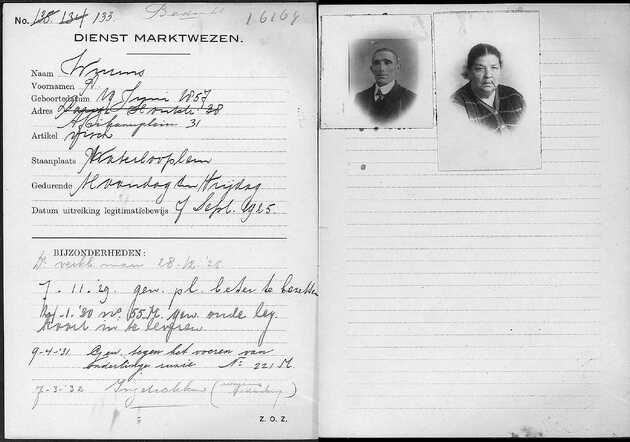 No. 135 134 133. 16169
DIENST MARKTWEZEN.
Naam
Voornamen
Geboortedatum 19 Juni 1857
Adres 38
Afrikanerplein 31
Artikel visch
Staanplaats Waterlooplein
Gedurende Maandag tm Vrijdag
Datum uitreiking legitimatiebewijs 7 Sept. 1925
BIJZONDERHEDEN:
28-12-'28
7.11.29. gew. pl. beter te bezetten
-1-'30 no. 55 M. gew. oude leg.
kaart in te leveren
9-4-'31 Gew. tegen het voeren van
onderlinge ruzie No 221 M.
7-3-'32 Ingetrokken (wegens
Z. O. Z.